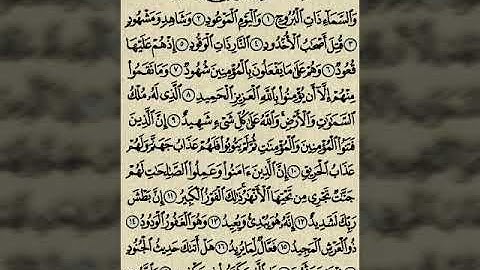 وَالسَّمَآءِ ذَاتِ الْبُرُوجِ ١ وَالْيَوْمِ الْمَوْعُودِ ٢ وَشَاهِدٍ وَمَشْهُودٍ
٣ قُتِلَ أَصْحَٰبُ الْأُخْدُودِ ٤ النَّارِ ذَاتِ الْوَقُودِ ٥ إِذْ هُمْ عَلَيْهَا
قُعُودٌ ٦ وَهُمْ عَلَىٰ مَا يَفْعَلُونَ بِالْمُؤْمِنِينَ شُهُودٌ ٧ وَمَا نَقَمُوا
مِنْهُمْ إِلَّآ أَن يُؤْمِنُوا بِاللَّهِ الْعَزِيزِ الْحَمِيدِ ٨ الَّذِى لَهُ مُلْكُ
السَّمَٰوَٰتِ وَالْأَرْضِ وَاللَّهُ عَلَىٰ كُلِّ شَىْءٍ شَهِيدٌ ٩ إِنَّ الَّذِينَ
فَتَنُوا الْمُؤْمِنِينَ وَالْمُؤْمِنَٰتِ ثُمَّ لَمْ يَتُوبُوا فَلَهُمْ عَذَابُ جَهَنَّمَ وَلَهُمْ
عَذَابُ الْحَرِيقِ ١٠ إِنَّ الَّذِينَ ءَامَنُوا وَعَمِلُوا الصَّٰلِحَٰتِ لَهُمْ
جَنَّٰتٌ تَجْرِى مِن تَحْتِهَا الْأَنْهَٰرُ ذَٰلِكَ الْفَوْزُ الْكَبِيرُ ١١ إِنَّ بَطْشَ
رَبِّكَ لَشَدِيدٌ ١٢ إِنَّهُ هُوَ يُبْدِئُ وَيُعِيدُ ١٣ وَهُوَ الْغَفُورُ الْوَدُودُ ١٤
ذُو الْعَرْشِ الْمَجِيدُ ١٥ فَعَّالٌ لِّمَا يُرِيدُ ١٦ هَلْ أَتَىٰكَ حَدِيثُ الْجُنُودِ